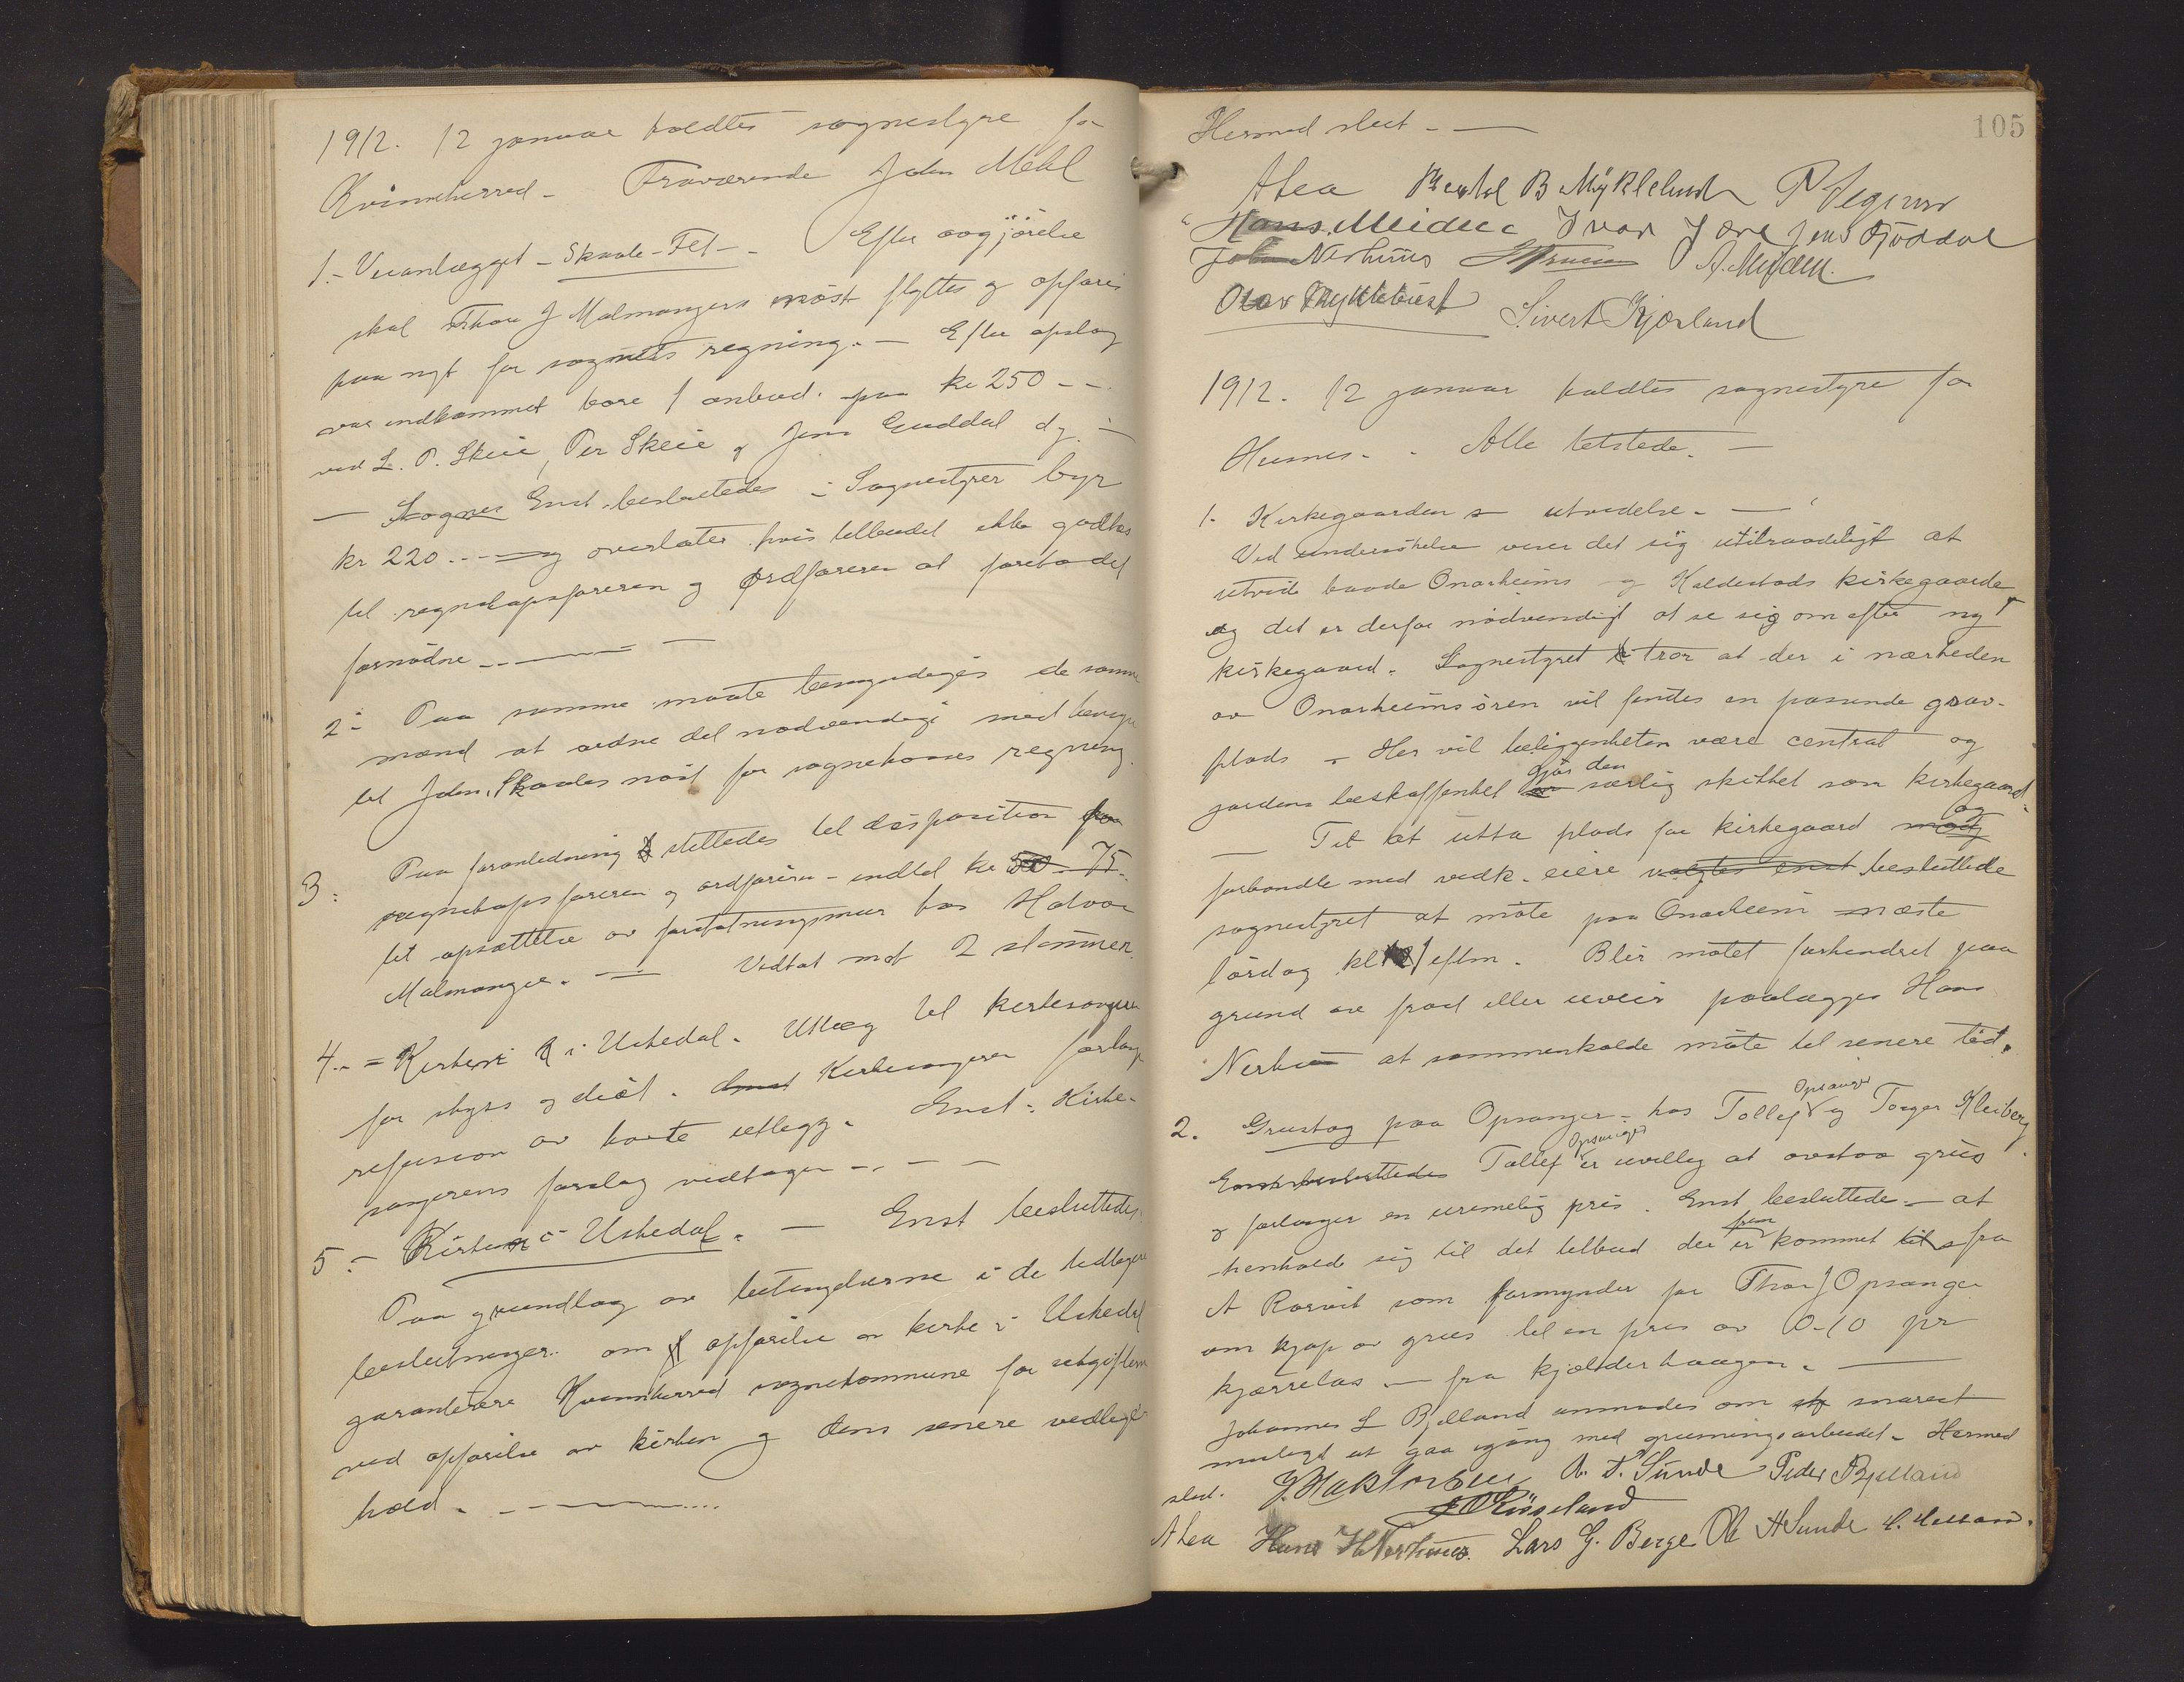 1912. 12 januar holdtes sognestyre for
Kvinnherred - Fraværende John Mehl
1. - Veianlægget - Skaale-Fet - - Efter avgjörelse
skal Thore J Malmangers nöst flyttes og opföres
paa nyt for sognets regning. - Efter opslag
var indkommet bare 1 anbud. paa kr 250 - -
ved L. P. Skeie, Per Skeie og Jens Guddal d.y. -
- Sognes Enst. besluttedes - Sognestyret byr
kr 220 - - og overlater hvis tilbudet ikke godtas
til regnskapsföreren og Ordföreren at foreta det
fornödne - -
2 - Paa samme maate bemyndiges de samme
mænd at ordne det nödvendige med
til John Skaales nöst for sognekassens regning.
3: Paa foranledning stilledes til disposition for
regnskapsföreren og ordföreren - indtil kr 50 75.
til opsættelse av forstötningsmur hos Halvor
Malmanger. - Vedtat mot 2 stemmer
4. = Kirken i Uskedal. Utlæg til kirkesangeren
for skyss og diæt. Enst Kirkesangeren forlanger
refusion av havte utlegg. Enst. Kirke-
sangerens forslag vedtages - . - -
5. - Kirken i Uskedal. - Enst besluttedes
Paa grundlag av betingelserne i de tidligere
beslutninger om opförelse av kirke i Uskedal
garanterer Kvinnherred sognekommune for utgifterne
ved opförelse av kirken og dens senere vedlige-
hold. - - -
105
Hermed slut. -
ALea Bertel B Myklebust P Vegum
Hans Meidell Ivar Jære Jens Guddal
John Nerhuus A. Mylden.
Olav Myklebust Sivert Kjærland
1912. 12 januar holdtes sognestyre for
Husnes. - Alle tilstede. -
1. Kirkegaardens utvidelse. -
Ved undersökelse viser det sig utilraadeligt at
utvide baade Onarheims og Holdestads kirkegaarde
og det er derfor nödvendigt at se sig om efter ny
kirkegaard. Sognestyret tror at der i nærheden
av Onarheimsören vil findes en passende grav-
plads - Her vil beliggenheten være central og
jordens beskaffenhet er gjör den særlig skikket som kirkegaard.
- Til at utta plads for kirkegaard og
forhandle med vedk. eiere valgtes enst besluttede
sognestyret at möte paa Onarheim næste
lördag kl 1 eftm. Blir mötet forhindret paa
grund av frost eller uveir paalægges Hans
Nerhuus at sammenkalde möte til senere tid.
2. Grustag paa Opsanger - hos Tollef Opsanger og Torger Kleiberg
Enst besluttedes Tollef Opsanger er uvillig at avstaa grus
og forlanger en urimelig pris. Enst besluttede - at
henholde sig til det tilbud der er frem kommet til fra
A Rørvik som formynder for Thor J Opsanger
om kjøp av grus til en pris av 0-10 pr
kjærrelas - fra kjælderhaugen. -
Johannes L Bjelland anmodes om at snarest
muligt at gaa igang med grusningsarbeidet. Hermed
slut. J. Haktorsen A. T. Sunde Peder Bjelland
J O Røsseland
ALea Hans H Nerhuus. Lars G. Berge Ole H Sunde